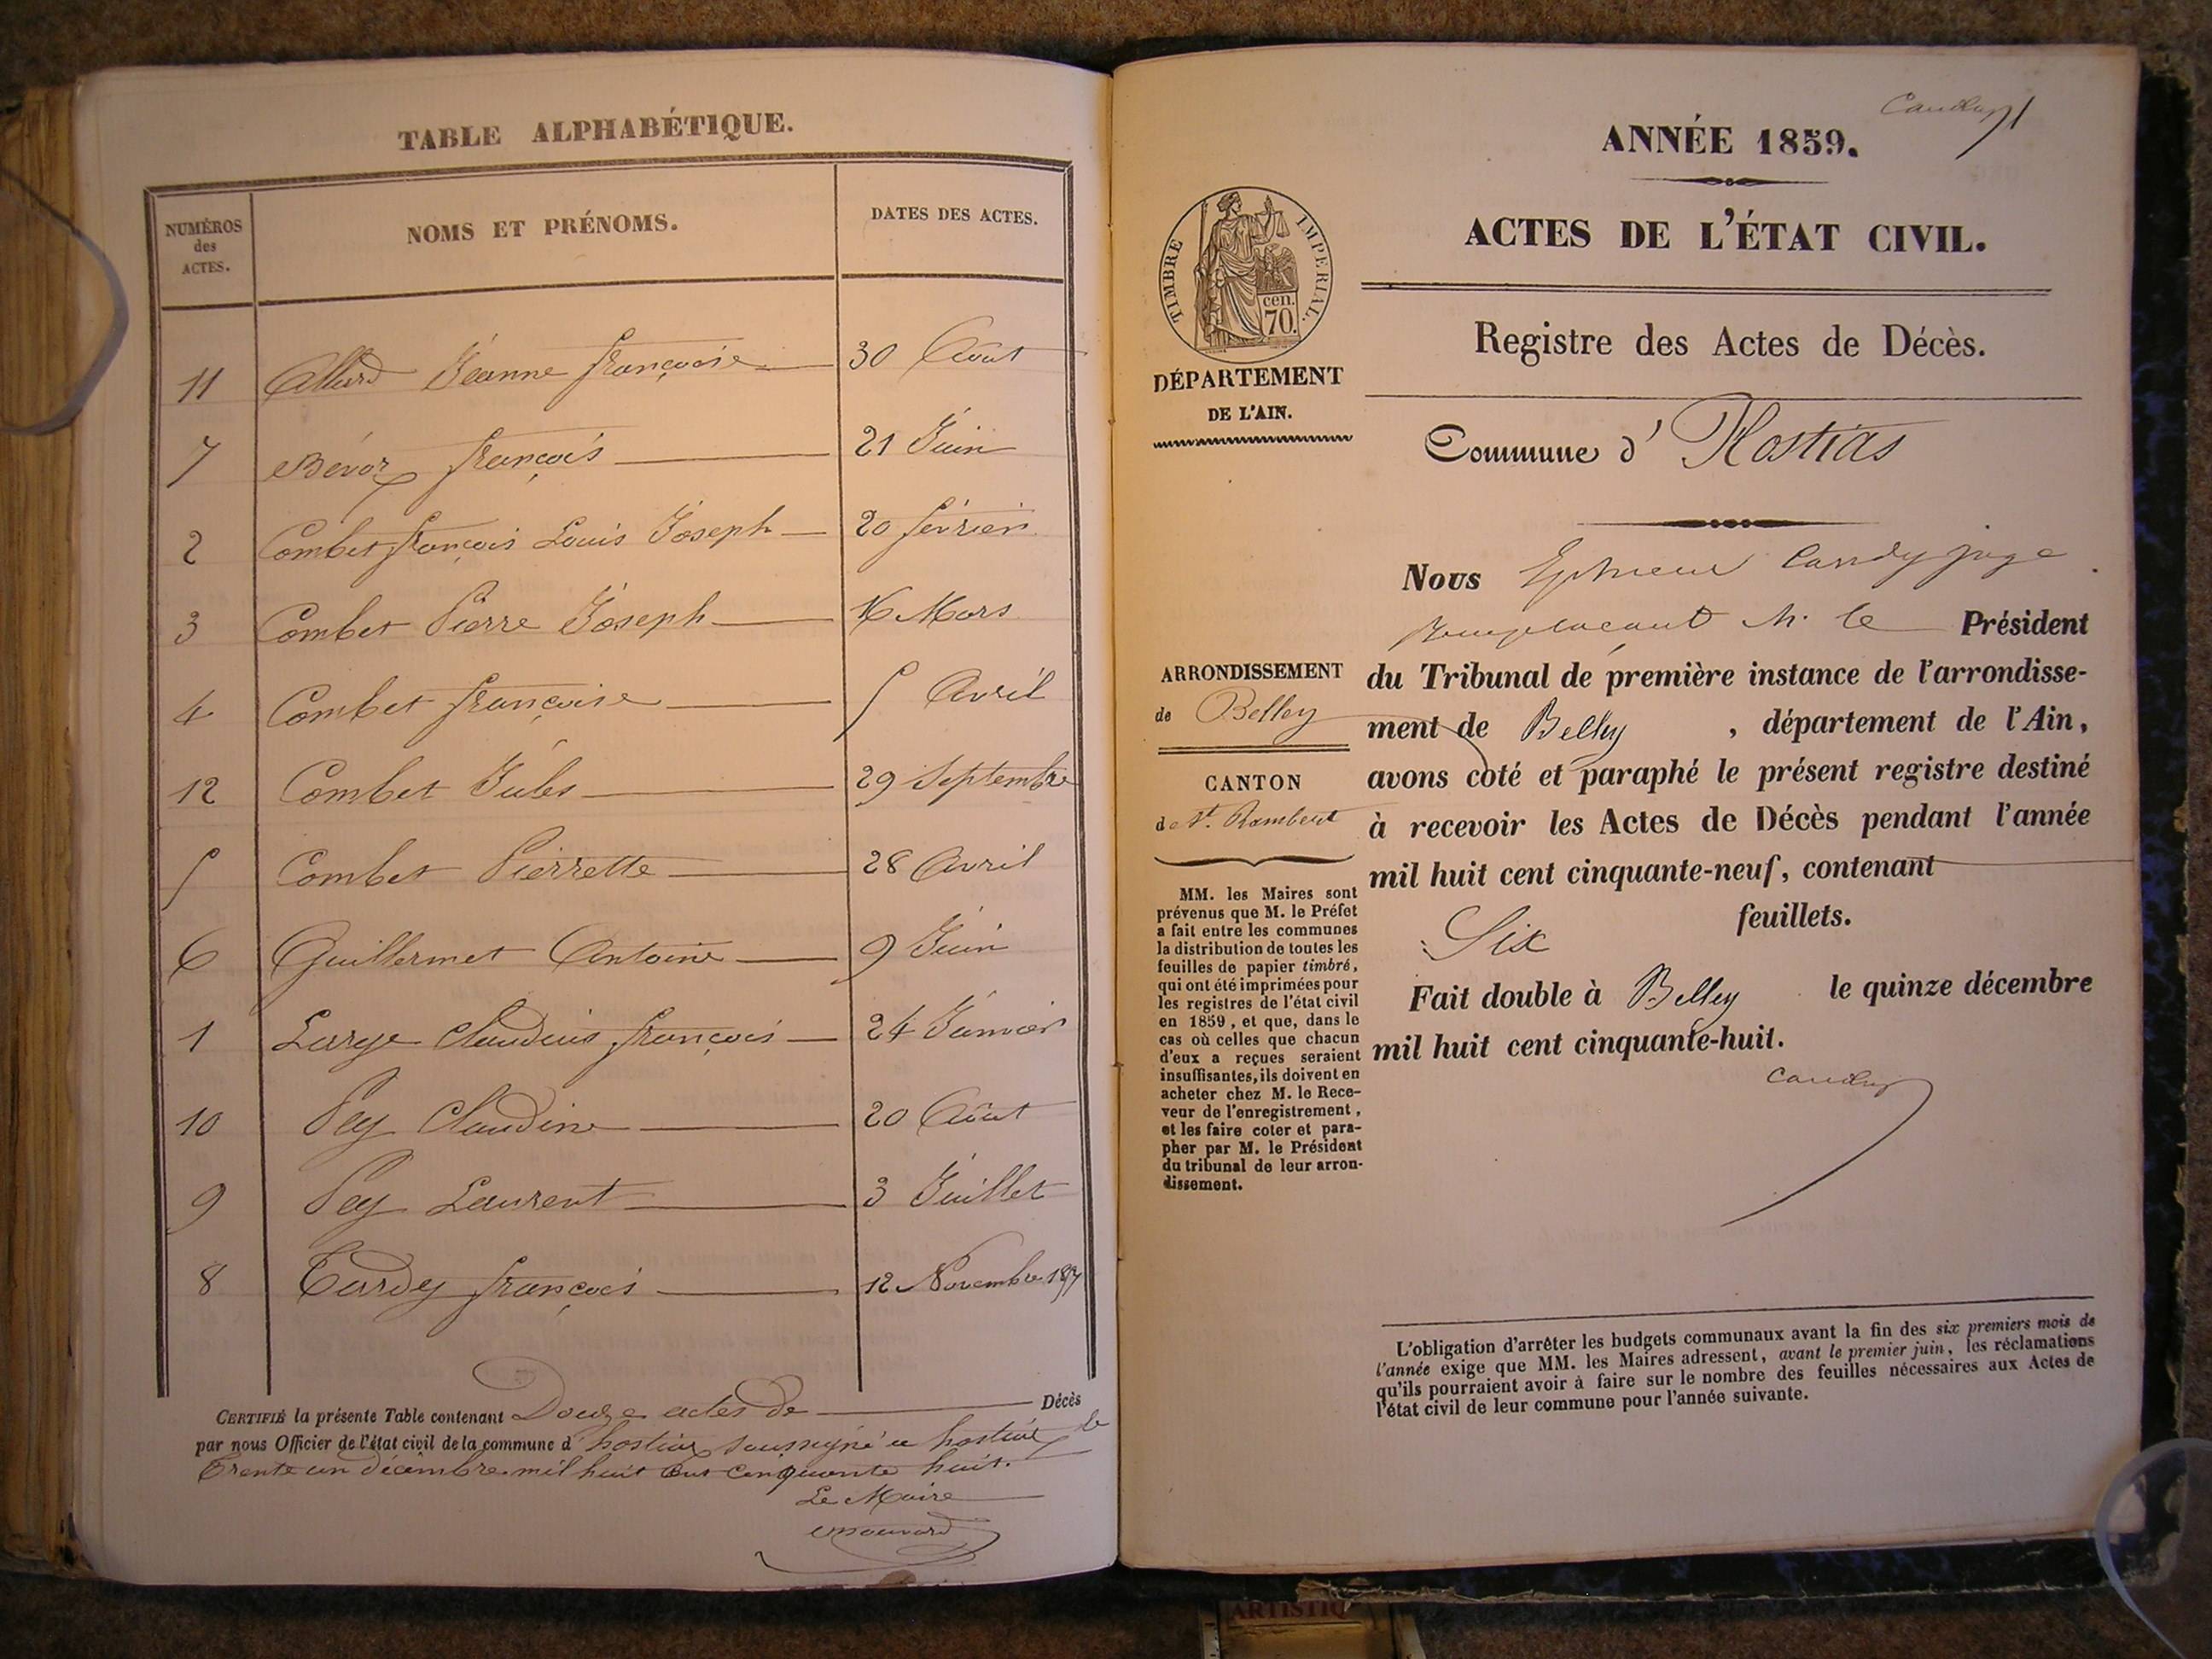 TABLE ALPHABÉTIQUE.
NUMÉROS des ACTES. NOMS ET PRÉNOMS. DATES DES ACTES.
11 Allard Jéanne françoise 30 Août
7 Bévoz françois 21 Juin
2 Combet françois Louis Joseph 20 février
3 Combet Pierre Joseph 16 Mars
4 Combet françoise 5 Avril
12 Combet Jules 29 Septembre
5 Combet Pierrette 28 Avril
6 Guillermet Antoine 9 Juin
1 Larye Claudius françois 24 Janvier
10 Pey Claudine 20 Août
9 Pey Laurent 3 Juillet
8 Tardy françois 12 Novembre 1857
CERTIFIÉ la présente Table contenant Douze actes de Décès
par nous Officier de l'état civil de la commune d' hostiaz soussigné à hostiaz le
trente un décembre mil huit cent cinquante huit.
Le Maire
Candy 1
ANNÉE 1859.
ACTES DE L'ÉTAT CIVIL.
TIMBRE IMPERIAL.
cen.
70.
DÉPARTEMENT
DE L'AIN.
Registre des Actes de Décès.
Commune d' Hostias
ARRONDISSEMENT
de Belley
CANTON
de St. Rambert
MM. les Maires sont
prévenus que M. le Préfet
a fait entre les communes
la distribution de toutes les
feuilles de papier timbré,
qui ont été imprimées pour
les registres de l'état civil
en 1859, et que, dans le
cas où celles que chacun
d'eux a reçues seraient
insuffisantes, ils doivent en
acheter chez M. le Rece-
veur de l'enregistrement,
et les faire coter et para-
pher par M. le Président
du tribunal de leur arron-
dissement.
Nous Candy juge
remplaçant M. le Président
du Tribunal de première instance de l'arrondisse-
ment de Belley , département de l'Ain,
avons coté et paraphé le présent registre destiné
à recevoir les Actes de Décès pendant l'année
mil huit cent cinquante-neuf, contenant
Six feuillets.
Fait double à Belley le quinze décembre
mil huit cent cinquante-huit.
Candy
L'obligation d'arrêter les budgets communaux avant la fin des six premiers mois de
l'année exige que MM. les Maires adressent, avant le premier juin, les réclamations
qu'ils pourraient avoir à faire sur le nombre des feuilles nécessaires aux Actes de
l'état civil de leur commune pour l'année suivante.
ARTISTIQ